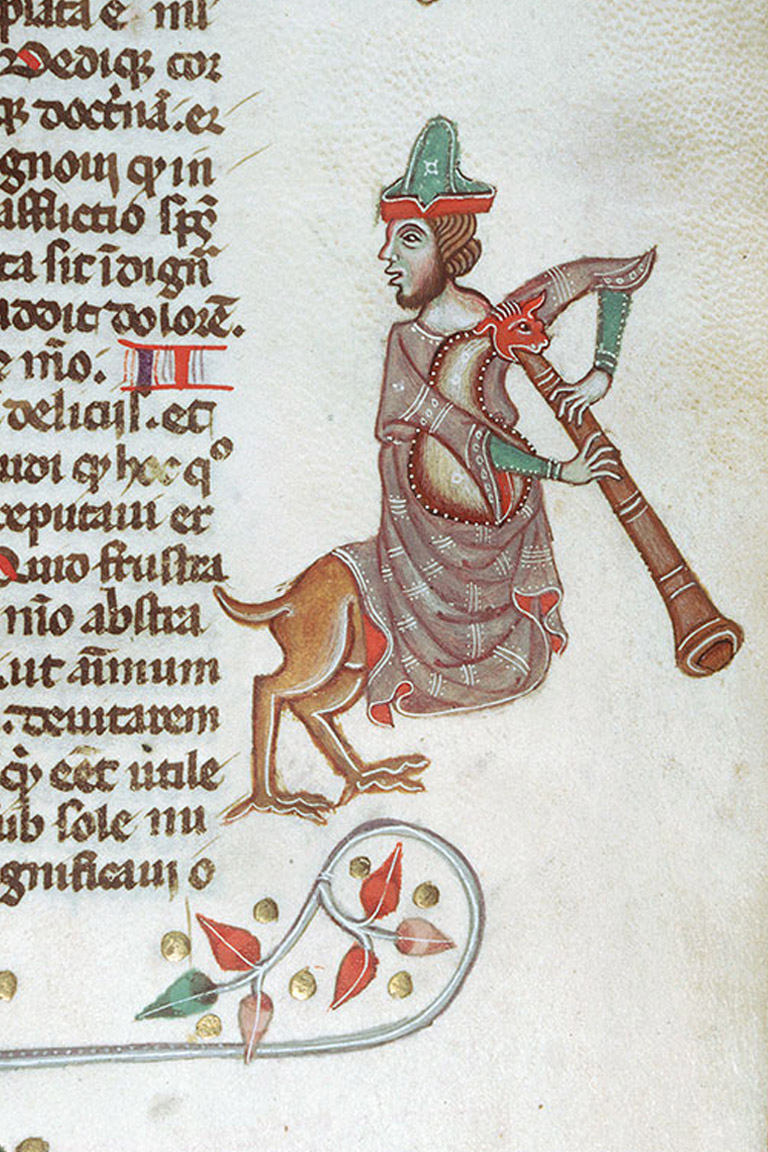 piata e mi
Dediq3 cor
q3 doct̄nā. er
gnoui q̇ in
afflictio sp̄s
ta sit īdigñ
addit dolorē.
e m̄o. II
deliciis. et
uidi q̇ hoc qº
reputaui er
Quid frustra
m̄o abstra
. ut añimum
. deuitarem
q̇ eēt utile
ub sole nu
gnificaui o